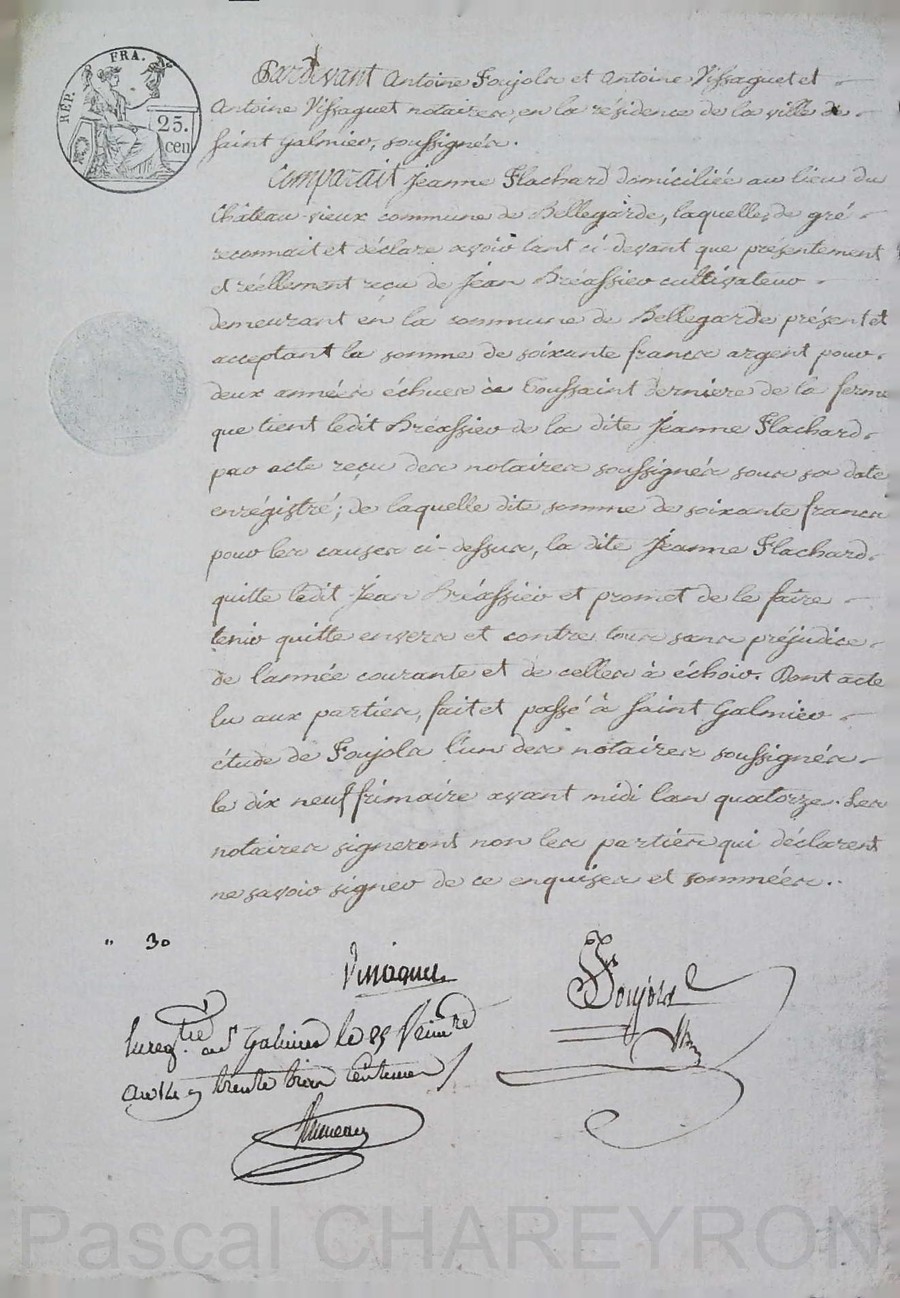 RÉP. FRA.
25.
cen
Pardevant Antoine Foujols et Antoine Vissaguet et
Antoine Vissaguet notaires, en la résidence de la ville de
Saint Galmier, soussignés.
Comparait Jeanne Flachard domiciliée au lieu du
Château-vieux commune de Bellegarde, laquelle, de gré
reconnait et déclare avoir tant ci-devant que présentement
et réellement reçu de Jean Bréassier cultivateur
demeurant en la commune de Bellegarde présent et
acceptant la somme de soixante francs argent pour
deux années échues à Toussaint derniere de la ferme
que tient ledit Bréassier de la dite Jeanne Flachard
par acte reçu des notaires soussignés sous sa date
enrégistré; de laquelle dite somme de soixante francs
pour les causes ci-dessus, la dite Jeanne Flachard
quitte ledit Jean Bréassier et promet de le faire
tenir quitte envers et contre tous sans préjudice
de l'année courante et de celles à échoir. Dont acte
lu aux parties, fait et passé à Saint Galmier
étude de Foujols l'un des notaires soussignés
le dix neuf frimaire avant midi l'an quatorze. Les
notaires signeront non les parties qui déclarent
ne savoir signer de ce enquises et sommées.
" 30
Vissaguet
Foujols
Enreg. à St Galmier le
trente trois centimes
Pascal CHAREYRON